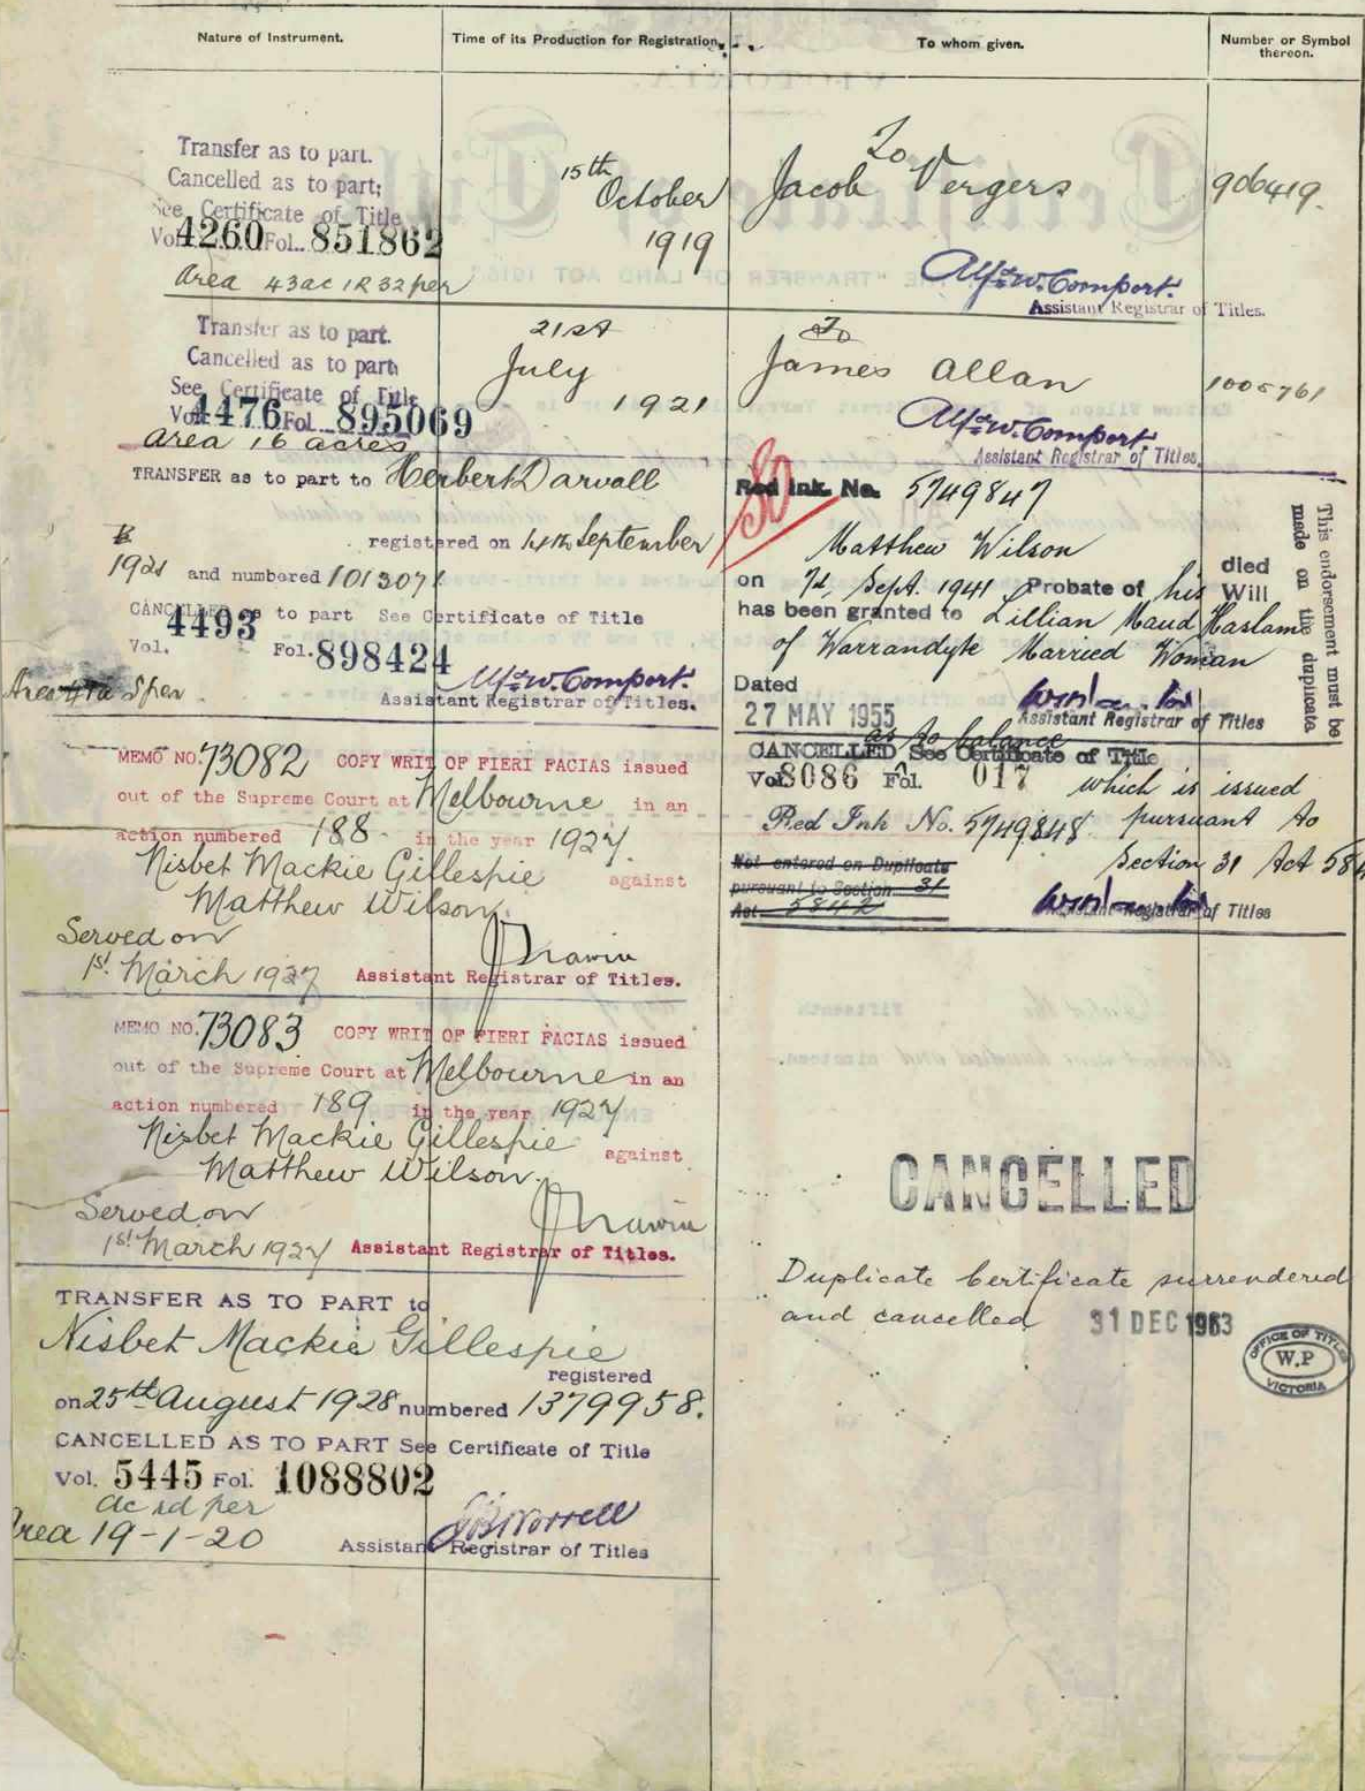 Nature of Instrument.
Time of its Production for Registration.
To whom given.
Number or Symbol thereon.
Transfer as to part.
Cancelled as to part;
See Certificate of Title
Vol. 4260 Fol. 851862
Area 43ac 1R 32per
15th October 1919
To
Jacob Vergers
906419.
Alfd. W. Comport.
Assistant Registrar of Titles.
Transfer as to part.
Cancelled as to part
See Certificate of Title
Vol. 4476 Fol. 895069
Area 16 acres
21st July 1921
To
James Allan
1005761
Alfd. W. Comport.
Assistant Registrar of Titles.
TRANSFER as to part to Herbert Darvall
registered on 14th September
1921 and numbered 1013071
CANCELLED as to part See Certificate of Title
Vol. 4493 Fol. 898424
Area
Alfd. W. Comport.
Assistant Registrar of Titles.
MEMO NO. 73082 COPY WRIT OF FIERI FACIAS issued
out of the Supreme Court at Melbourne in an
action numbered 188 in the year 1927.
Nisbet Mackie Gillespie against
Matthew Wilson.
Served on
1st March 1927 Assistant Registrar of Titles.
MEMO NO. 73083 COPY WRIT OF FIERI FACIAS issued
out of the Supreme Court at Melbourne in an
action numbered 189 in the year 1927
Nisbet Mackie Gillespie against
Matthew Wilson.
Served on
1st March 1927 Assistant Registrar of Titles.
TRANSFER AS TO PART to
Nisbet Mackie Gillespie
registered
on 25th August 1928 numbered 1379958.
CANCELLED AS TO PART See Certificate of Title
Vol. 5445 Fol. 1088802
ac rd per
Area 19-1-20
Assistant Registrar of Titles
Red Ink No. 5749847
Matthew Wilson
died
on 7th Sept. 1941 Probate of his Will
has been granted to Lillian Maud Haslam
of Warrandyte Married Woman
Dated
27 MAY 1955
Assistant Registrar of Titles
This endorsement must be
made on the duplicate
as to balance
CANCELLED See Certificate of Title
Vol. 8086 Fol. 017 which is issued
Red Ink No. 5749848 pursuant to
Section 31 Act 584
Not entered on Duplicate
pursuant to Section 31
Act 5842
Assistant Registrar of Titles
CANCELLED
Duplicate Certificate surrendered
and cancelled 31 DEC 1963
OFFICE OF TITLES
W.P
VICTORIA